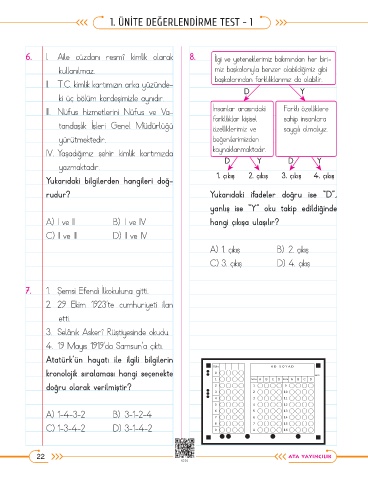 1. ÜNİTE DEĞERLENDİRME TEST - 1
6. I. Aile cüzdanı resmî kimlik olarak
kullanılmaz.
II. T.C. kimlik kartımızın arka yüzünde-
ki üç bölüm kardeşimizle aynıdır.
III. Nüfus hizmetlerini Nüfus ve Va-
tandaşlık İşleri Genel Müdürlüğü
yürütmektedir.
IV. Yaşadığımız şehir kimlik kartımızda
yazmaktadır.
Yukarıdaki bilgilerden hangileri doğ-
rudur?
A) I ve II B) I ve IV
C) II ve III D) II ve IV
7. 1. Şemsi Efendi İlkokuluna gitti.
2. 29 Ekim 1923'te cumhuriyeti ilan
etti.
3. Selânik Askerî Rüştiyesinde okudu.
4. 19 Mayıs 1919'da Samsun'a çıktı.
Atatürk'ün hayatı ile ilgili bilgilerin
kronolojik sıralaması hangi seçenekte
doğru olarak verilmiştir?
A) 1-4-3-2 B) 3-1-2-4
C) 1-3-4-2 D) 3-1-4-2
8. İlgi ve yeteneklerimiz bakımından her biri-
miz başkalarıyla benzer olabildiğimiz gibi
başkalarından farklılıklarımız da olabilir.
D Y
İnsanlar arasındaki
farklılıklar kişisel
özelliklerimiz ve
beğenilerimizden
kaynaklanmaktadır.
Farklı özelliklere
sahip insanlara
saygılı olmalıyız.
D Y D Y
1. çıkış 2. çıkış 3. çıkış 4. çıkış
Yukarıdaki ifadeler doğru ise "D",
yanlış ise "Y" oku takip edildiğinde
hangi çıkışa ulaşılır?
A) 1. çıkış B) 2. çıkış
C) 3. çıkış D) 4. çıkış
22
ATA YAYINCILIK